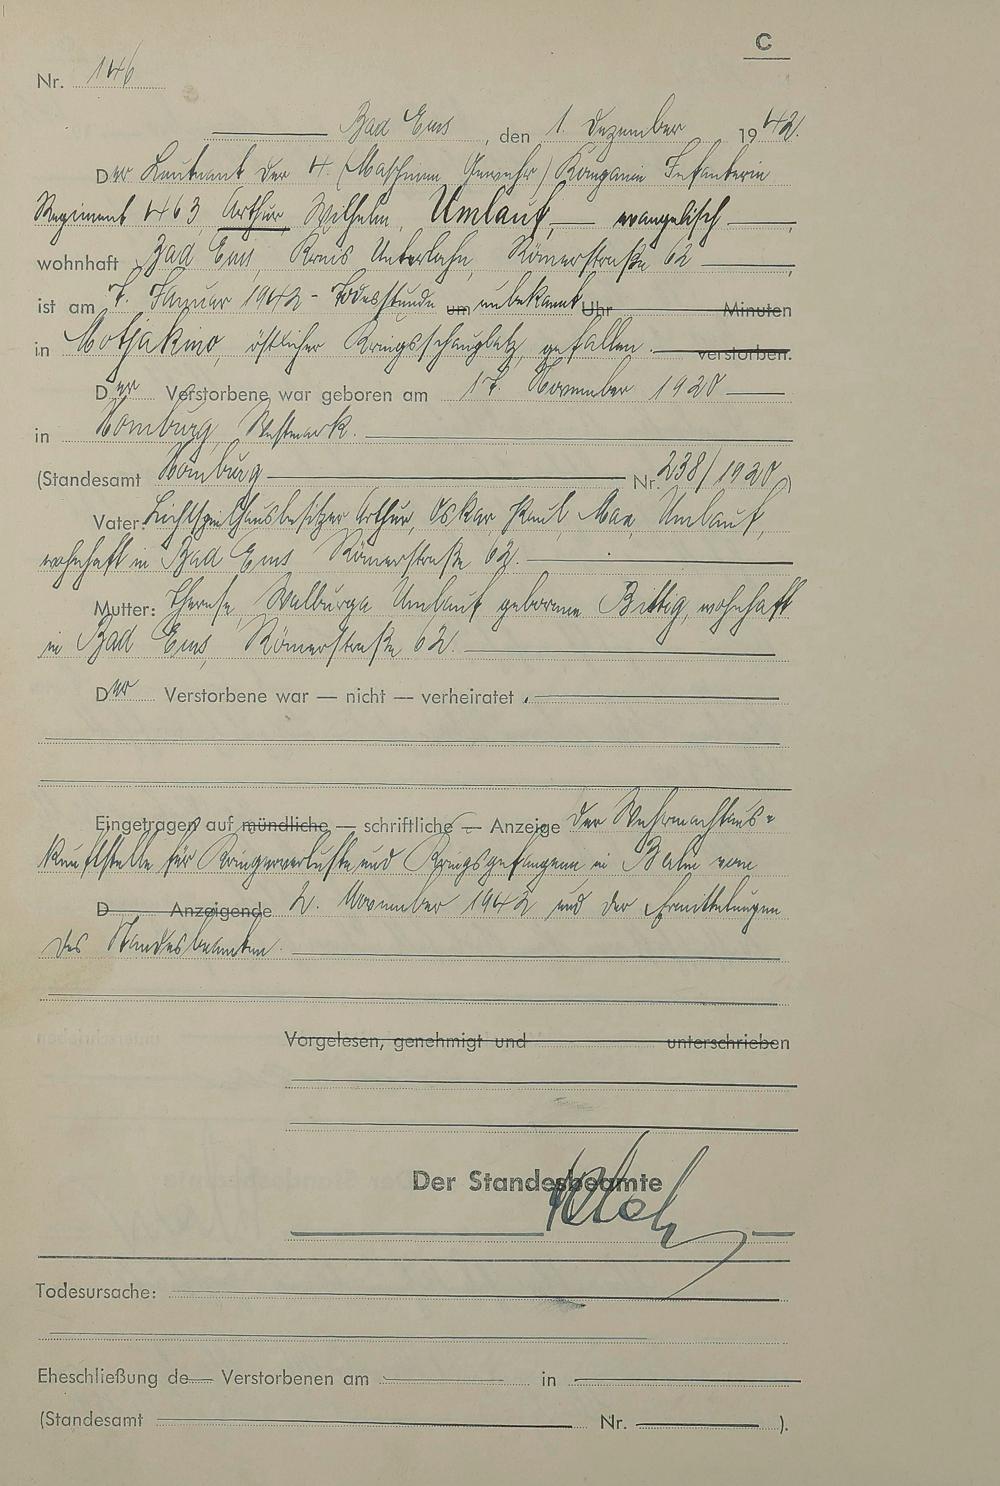 C
Nr. 146
Bad Ems, den 1. Dezember 1942.
Der Leutnant der 4. (Maschinen Gewehr) Kompanie Infanterie
Regiment 463, Arthur, Wilhelm, Umlauf, — evangelisch —,
wohnhaft Bad Ems, Kreis Unterlahn, Römerstraße 62 —,
ist am 7. Januar 1942 - Todesstunde um unbekannt Uhr Minuten
in Motjakino, östlicher Kriegsschauplatz, gefallen. — verstorben.
Der Verstorbene war geboren am 17. November 1920 —
in Homburg, Westmark. —
(Standesamt Homburg — Nr. 238/1920)
Vater: Lichtspielhausbesitzer Arthur, Oskar, Paul, Max, Umlauf,
wohnhaft in Bad Ems Römerstraße 62. —
Mutter: Therese, Walburga Umlauf geborene Bittig, wohnhaft
in Bad Ems, Römerstraße 62. —
Der Verstorbene war — nicht — verheiratet. —
Eingetragen auf mündliche — schriftliche — Anzeige der Wehrmachtaus-
kunftstelle für Kriegerverluste und Kriegsgefangene in vom
D Anzeigende 2. November 1942 und der Ermittelungen
des Standesbeamten. —
Vorgelesen, genehmigt und unterschrieben
Der Standesbeamte
Todesursache: —
Eheschließung de— Verstorbenen am — in —
(Standesamt — Nr. — ).